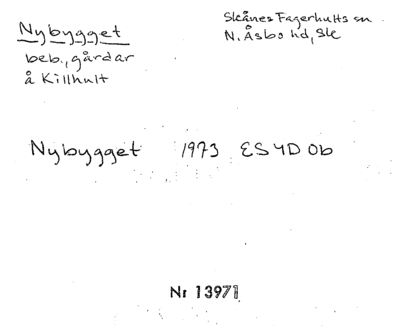 Nybygget
beb., gårdar
å Killhult
Skånes Fagerhults sn
N. Åsbo hd, Sk
Nybygget 1973 ES 4D 0b
Nr 13971